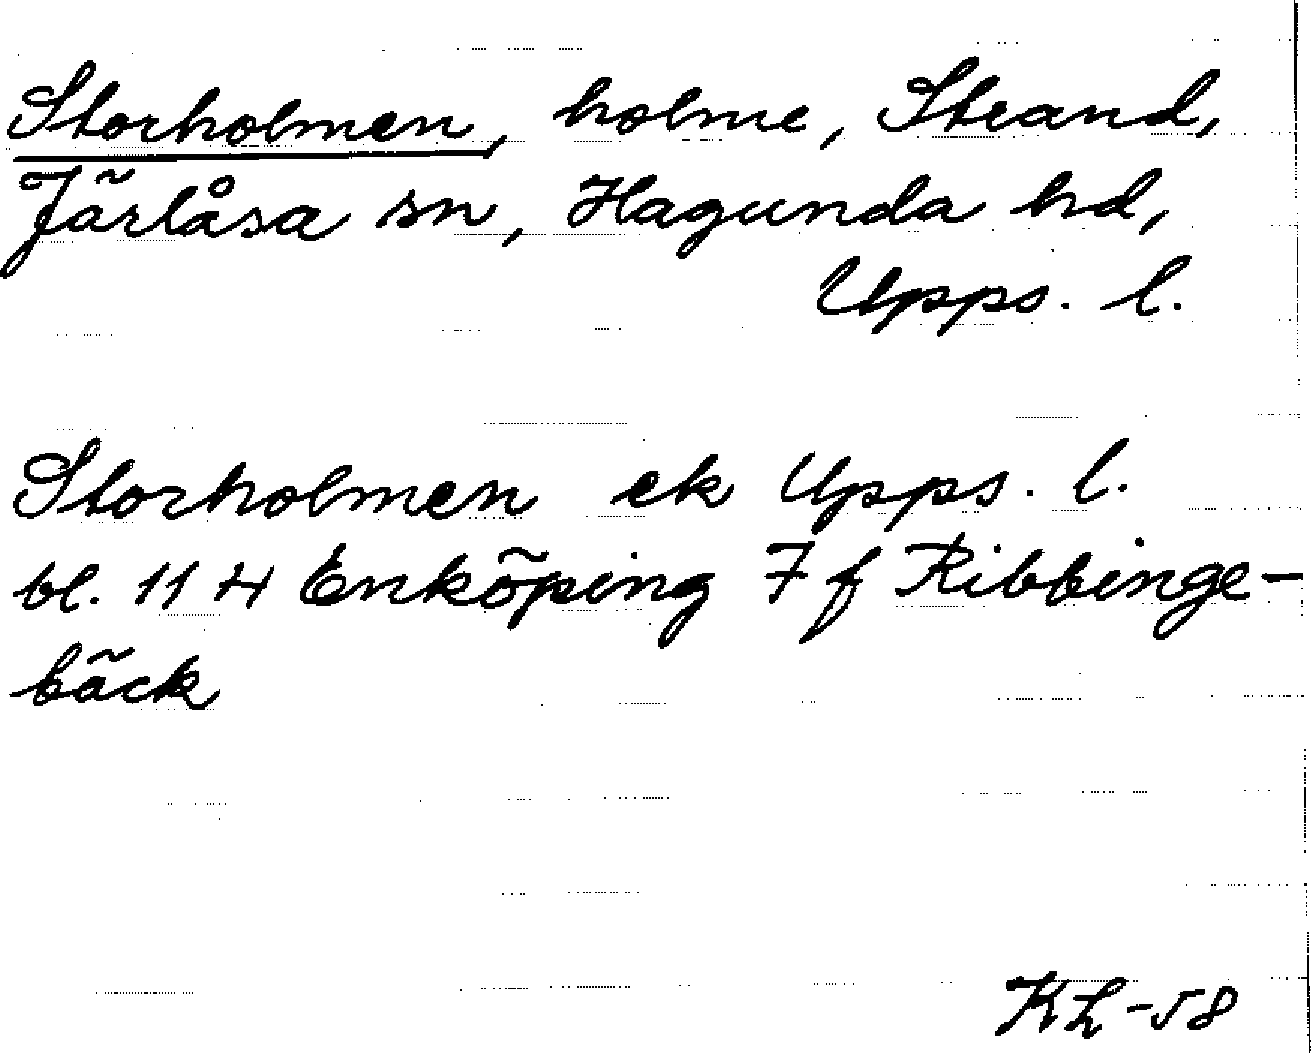 Storholmen, holme, Strand,
Järlåsa sn, Hagunda hd,
Upps. l.
Storholmen ek Upps. l.
bl. 11 H Enköping 7 f Ribbinge-
bäck
KL-58